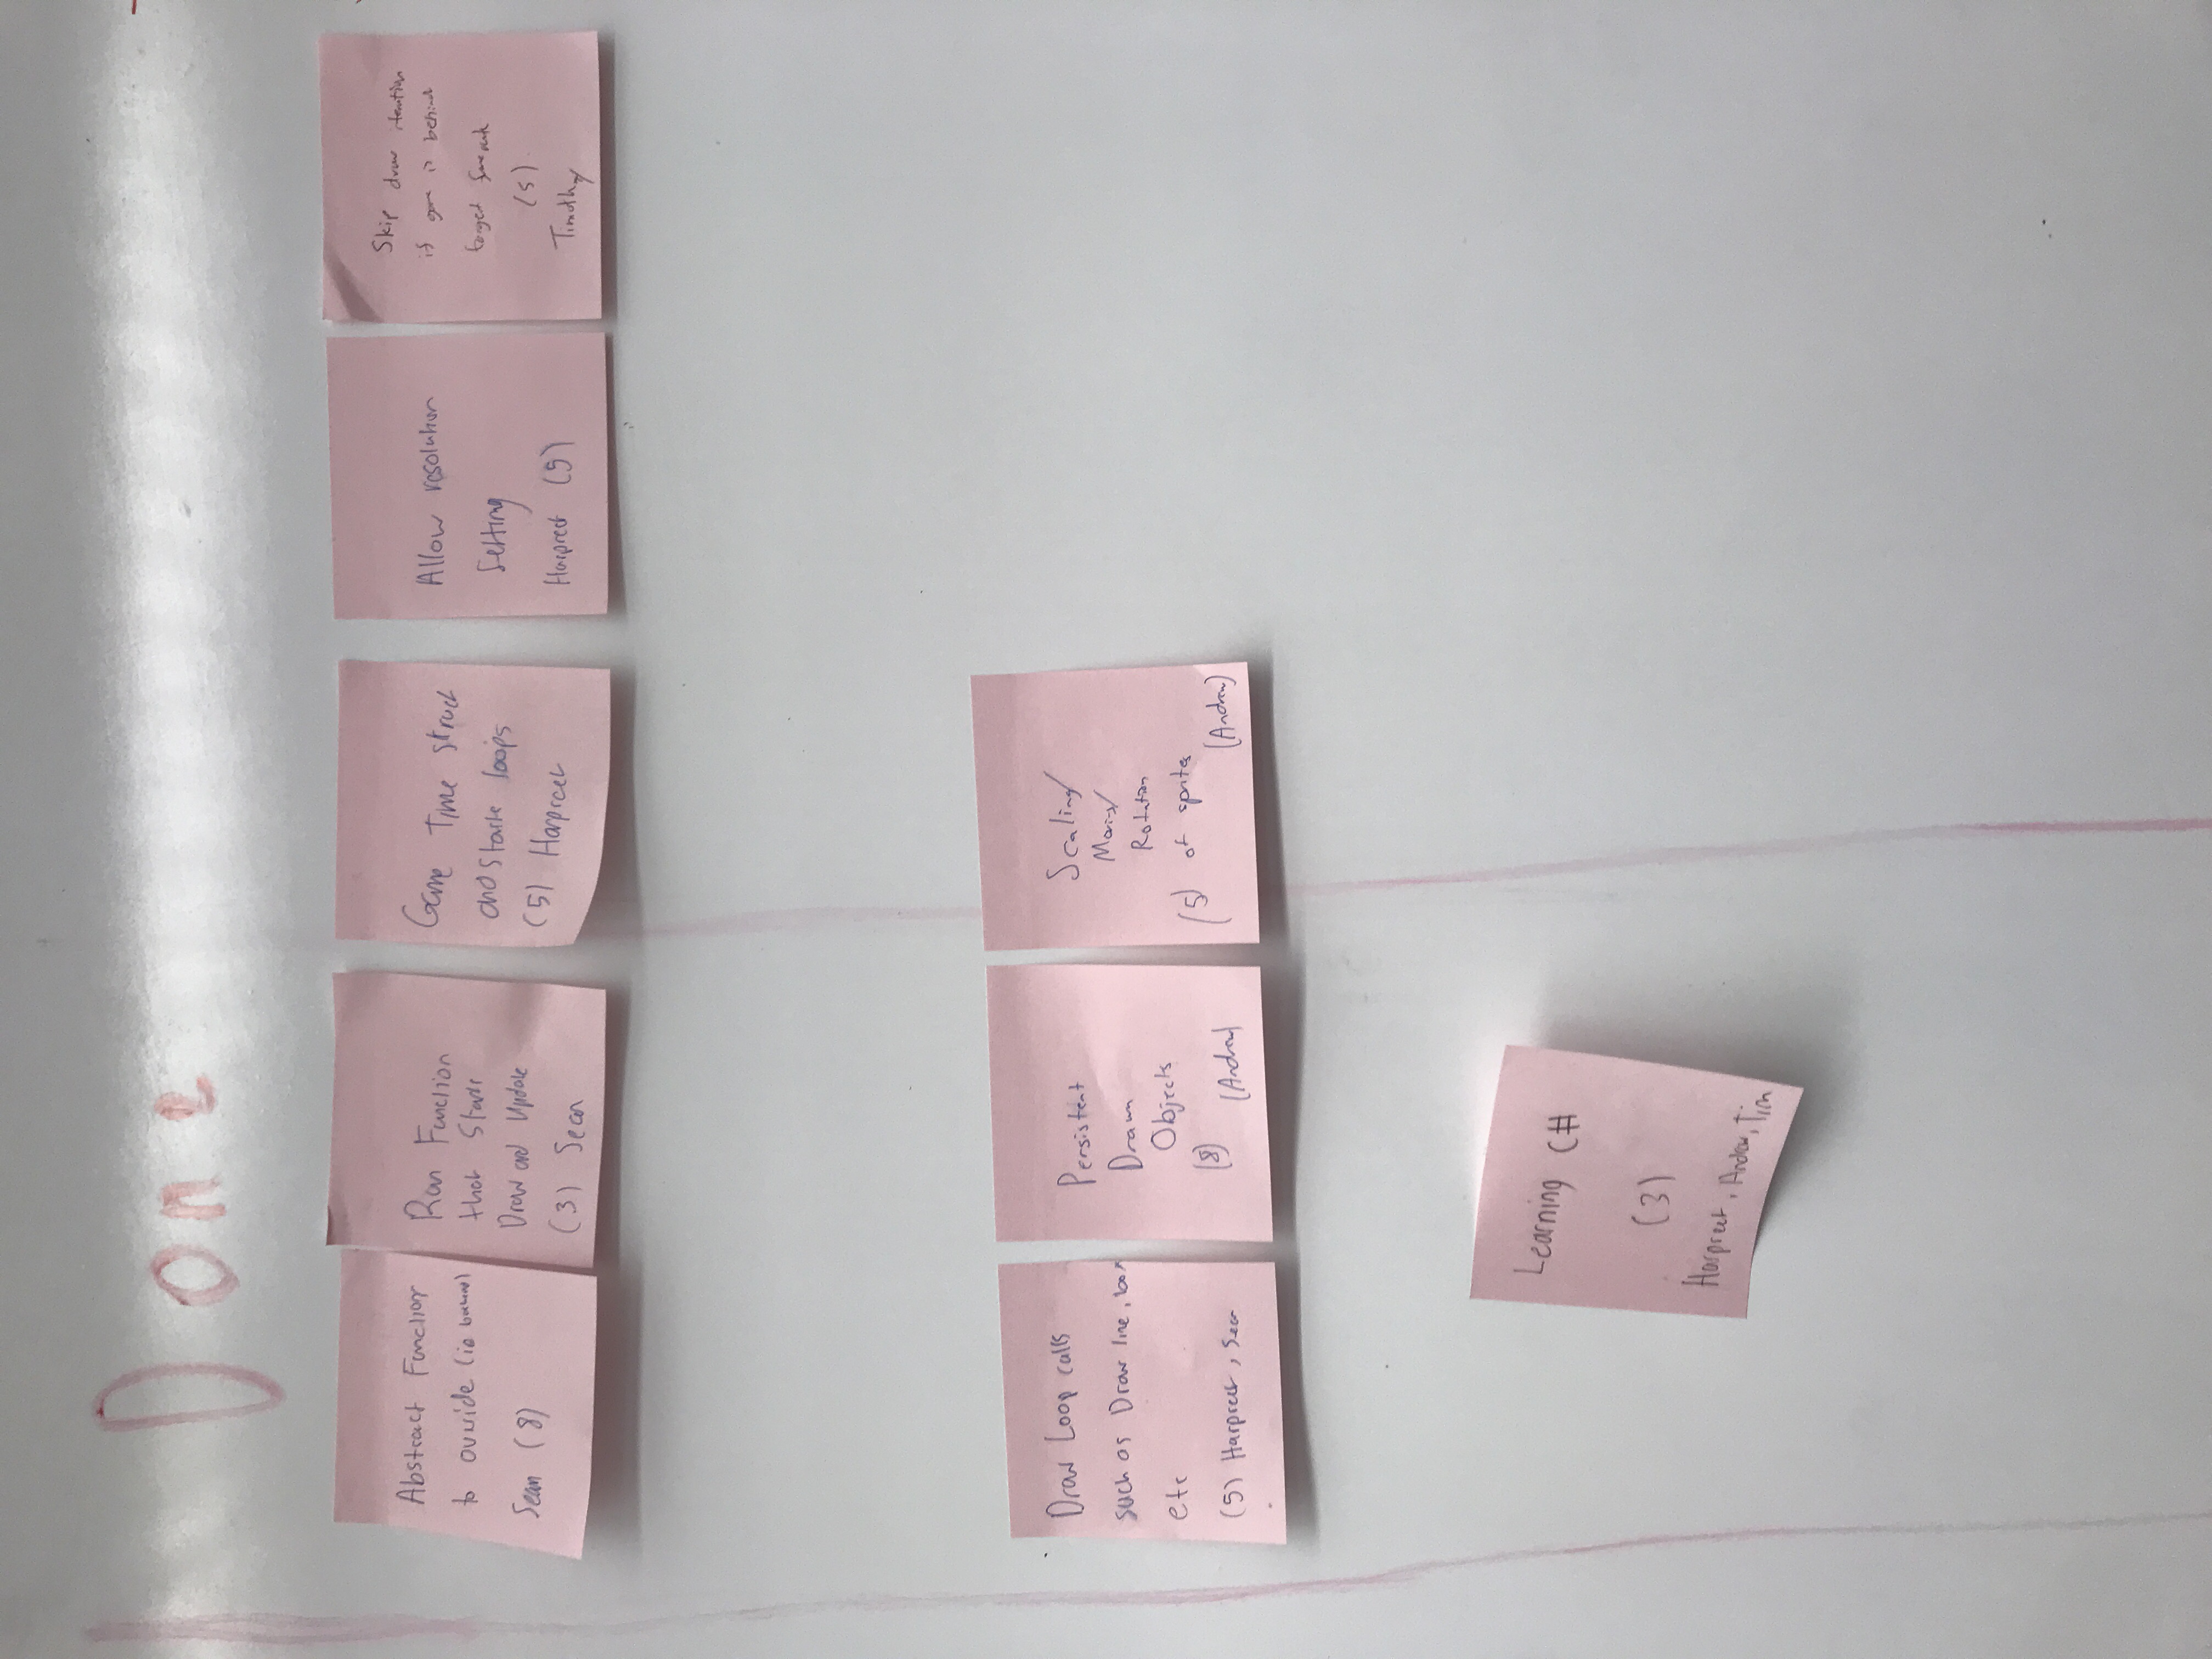 Done
Abstract Function
to override (ie
Sean (8)
Run Function
that Starts
Draw and Update
(3) Sean
Game Time struct
and starte loops
(5) Harpreet
Allow resolution
Setting
Harpreet (5)
Skip draw iteration
if game is behind
target framerate
(5)
Timothy
Draw Loop calls
such as Draw line, box
etc
(5) Harpreet, Sean
Persistent
Drawn
Objects
(8)
(Andrew)
Scaling/
Moving/
Rotation
(5) of sprites
(Andrew)
Learning C#
(3)
Harpreet, Andrew, Tim